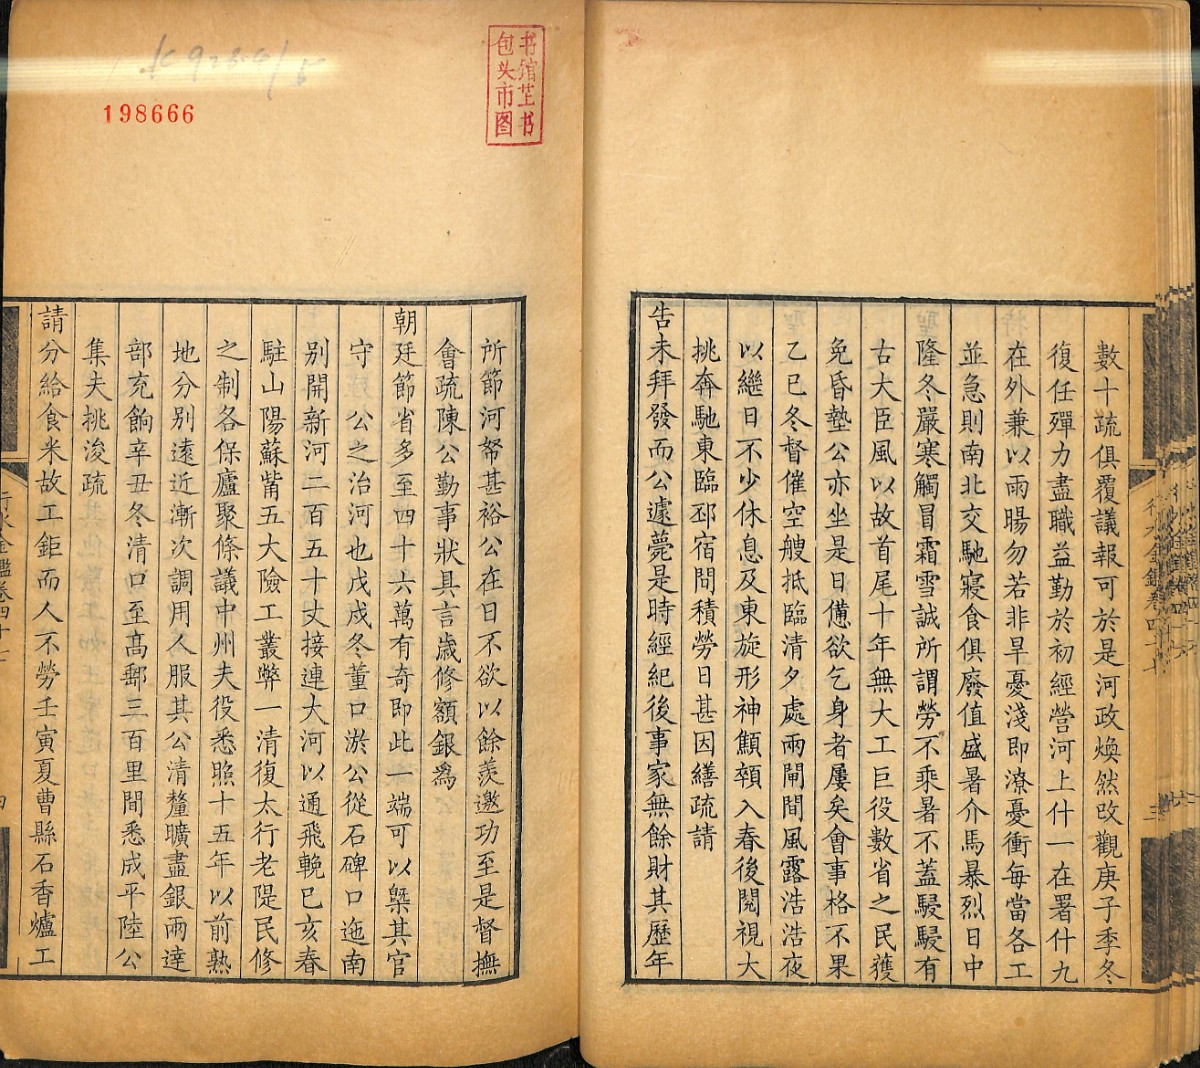 數十疏俱覆議報可於是河政煥然改觀庚子季冬
復任殫力盡職益勤於初經營河上什一在署什九
在外兼以雨暘勿若非旱憂淺即潦憂衝每當各工
並急則南北交馳寢食俱廢值盛暑介馬暴烈日中
隆冬嚴寒觸冒霜雪誠所謂勞不乘暑不蓋駸駸有
古大臣風以故首尾十年無大工巨役數省之民獲
免昏墊公亦坐是日憊欲乞身者屢矣會事格不果
乙巳冬督催空艘抵臨清夕處兩閘間風露浩浩夜
以繼日不少休息及東旋形神顦顇入春後閱視大
挑奔馳東臨邳宿間積勞日甚因繕疏請
告未拜發而公遽薨是時經紀後事家無餘財其歷年
所節河帑甚裕公在日不欲以餘羨邀功至是督撫
會疏陳公勤事狀具言歲修額銀為
朝廷節省多至四十六萬有奇即此一端可以槩其官
守 公之治河也戊戌冬董口淤公從石碑口迤南
別開新河二百五十丈接連大河以通飛輓已亥春
駐山陽蘇觜五大險工叢弊一清復太行老隄民修
之制各保廬聚條議中州夫役悉照十五年以前熟
地分別遠近漸次調用人服其公清釐曠盡銀兩達
部充餉辛丑冬清口至高郵三百里間悉成平陸公
集夫挑浚疏
請分給食米故工鉅而人不勞壬寅夏曹縣石香爐工
行水金鑑卷四十七
四
包头市图
书馆芷书
198666